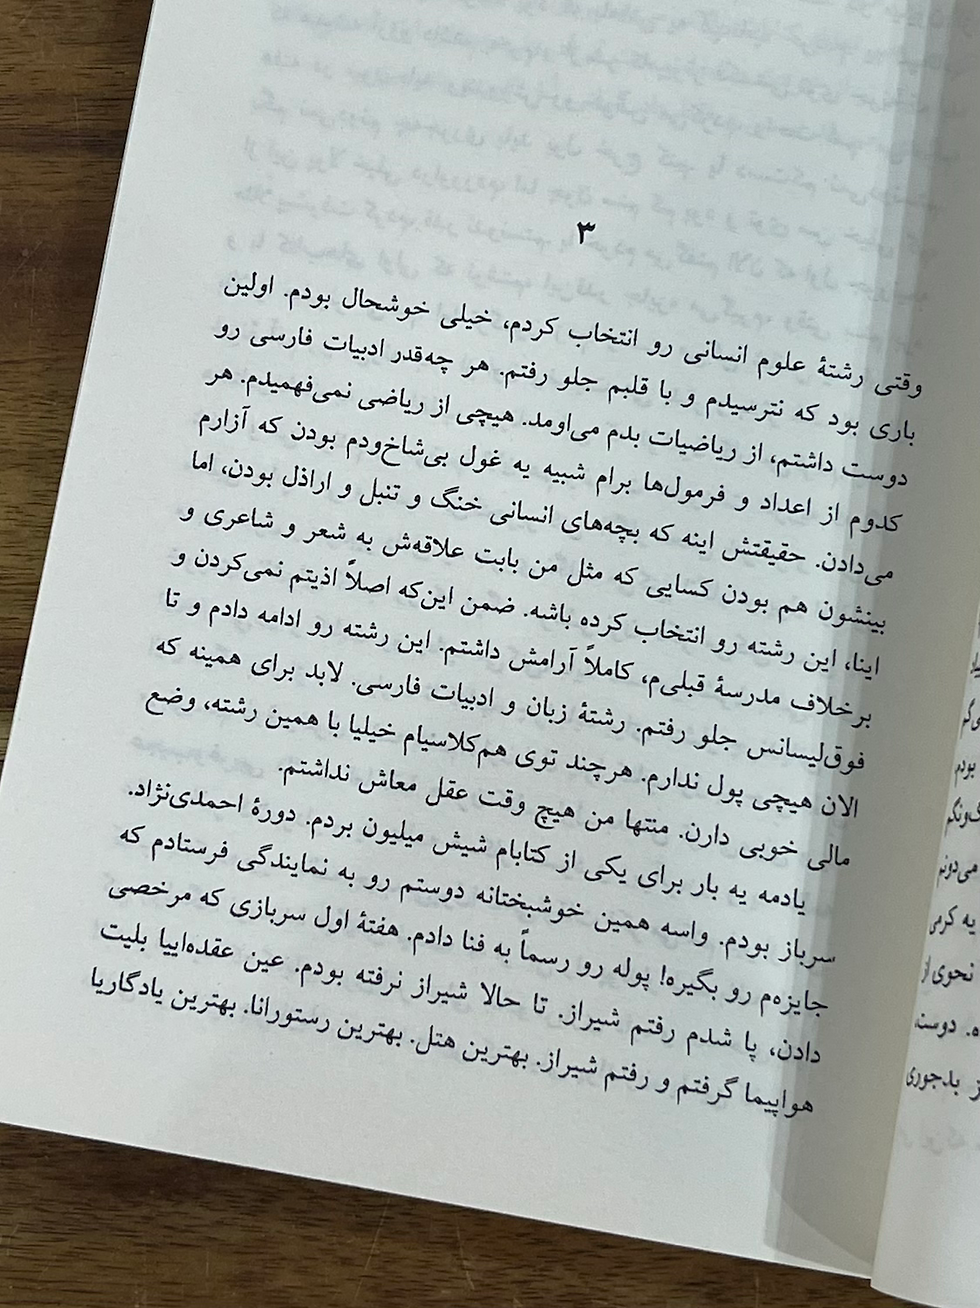 ۳
وقتی رشتهٔ علوم انسانی رو انتخاب کردم، خیلی خوشحال بودم. اولین
باری بود که نترسیدم و با قلبم جلو رفتم. هر چه‌قدر ادبیات فارسی رو
دوست داشتم، از ریاضیات بدم می‌اومد. هیچی از ریاضی نمی‌فهمیدم. هر
کدوم از اعداد و فرمول‌ها برام شبیه یه غول بی‌شاخ‌ودم بودن که آزارم
می‌دادن. حقیقتش اینه که بچه‌های انسانی خنگ و تنبل و اراذل بودن، اما
بینشون هم بودن کسایی که مثل من بابت علاقه‌ش به شعر و شاعری و
اینا، این رشته رو انتخاب کرده باشه. ضمن این‌که اصلاً اذیتم نمی‌کردن و
برخلاف مدرسهٔ قبلی‌م، کاملاً آرامش داشتم. این رشته رو ادامه دادم و تا
فوق‌لیسانس جلو رفتم. رشتهٔ زبان و ادبیات فارسی. لابد برای همینه که
الان هیچی پول ندارم. هرچند توی هم‌کلاسیام خیلیا با همین رشته، وضع
مالی خوبی دارن. منتها من هیچ وقت عقل معاش نداشتم.
یادمه یه بار برای یکی از کتابام شیش میلیون بردم. دورهٔ احمدی‌نژاد.
سرباز بودم. واسه همین خوشبختانه دوستم رو به نمایندگی فرستادم که
جایزه‌م رو بگیره! پوله رو رسماً به فنا دادم. هفتهٔ اول سربازی که مرخصی
دادن، پا شدم رفتم شیراز. تا حالا شیراز نرفته بودم. عین عقده‌اییا بلیت
هواپیما گرفتم و رفتم شیراز. بهترین هتل. بهترین رستورانا. بهترین یادگاریا
بودم
می‌دونم
یه کرمی
نحوی از
ه. دوست
ز بدجوری